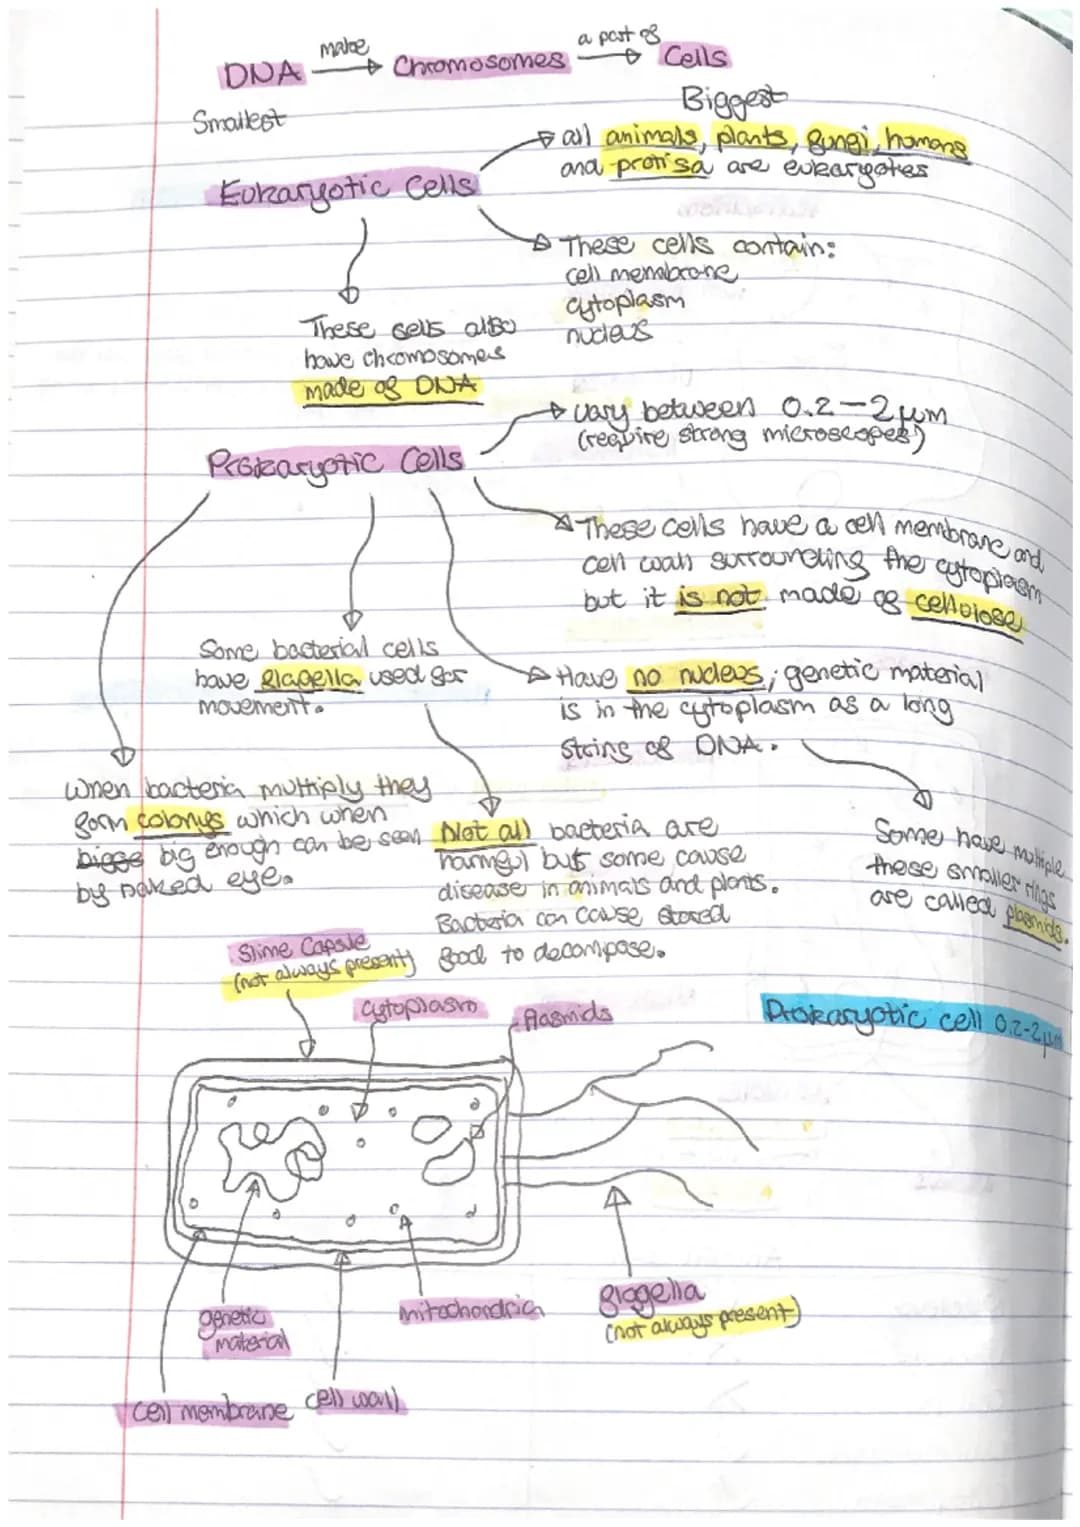 DNA make Chromosomes a part of Cells
Smallest
Biggest
all animals, plants, fungi, humans
and protisa are eukaryotes
Eukaryotic Cells
These cells contain:
cell membrane
cytoplasm
nucleus
These cells also
have chromosomes
made of DNA
vary between 0.2-2µm
(require strong microscopes)
Prokaryotic Cells
These cells have a cell membrane and
cell wall surrounding the cytoplasm
but it is not made of cellulose
Some bacterial cells
have flagella used for
movement.
Have no nucleus; genetic material
is in the cytoplasm as a long
string of DNA.
When bacteria multiply they
form colonys which when
bigge big enough can be seen
by naked eye.
Not all bacteria are
harmful but some cause
disease in animals and plants.
Bacteria can cause stored
food to decompose.
Some have multiple
these smaller rings
are called plasmids.
Slime Capsule
(not always present)
cytoplasm
Plasmids
Prokaryotic cell 0.2-2µm
genetic
material
mitochondria
flagella
(not always present)
cell membrane
cell wall